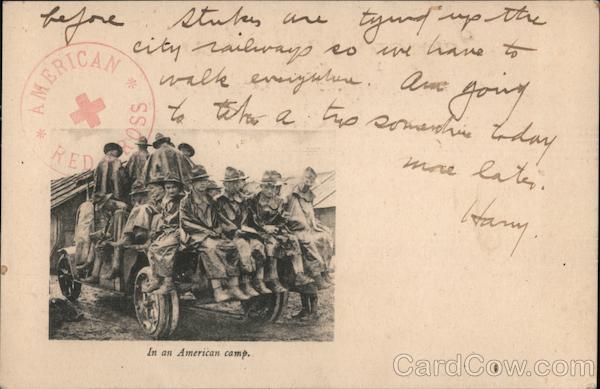 before Strikes are tying up the
city railways so we have to
walk everywhere. Am going
to take a trip somewhere today
more later.
Harry.
AMERICAN
RED CROSS
In an American camp.
CardCow.com